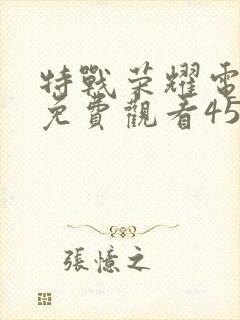 特戰荣耀電
免費觀看45
張憶之